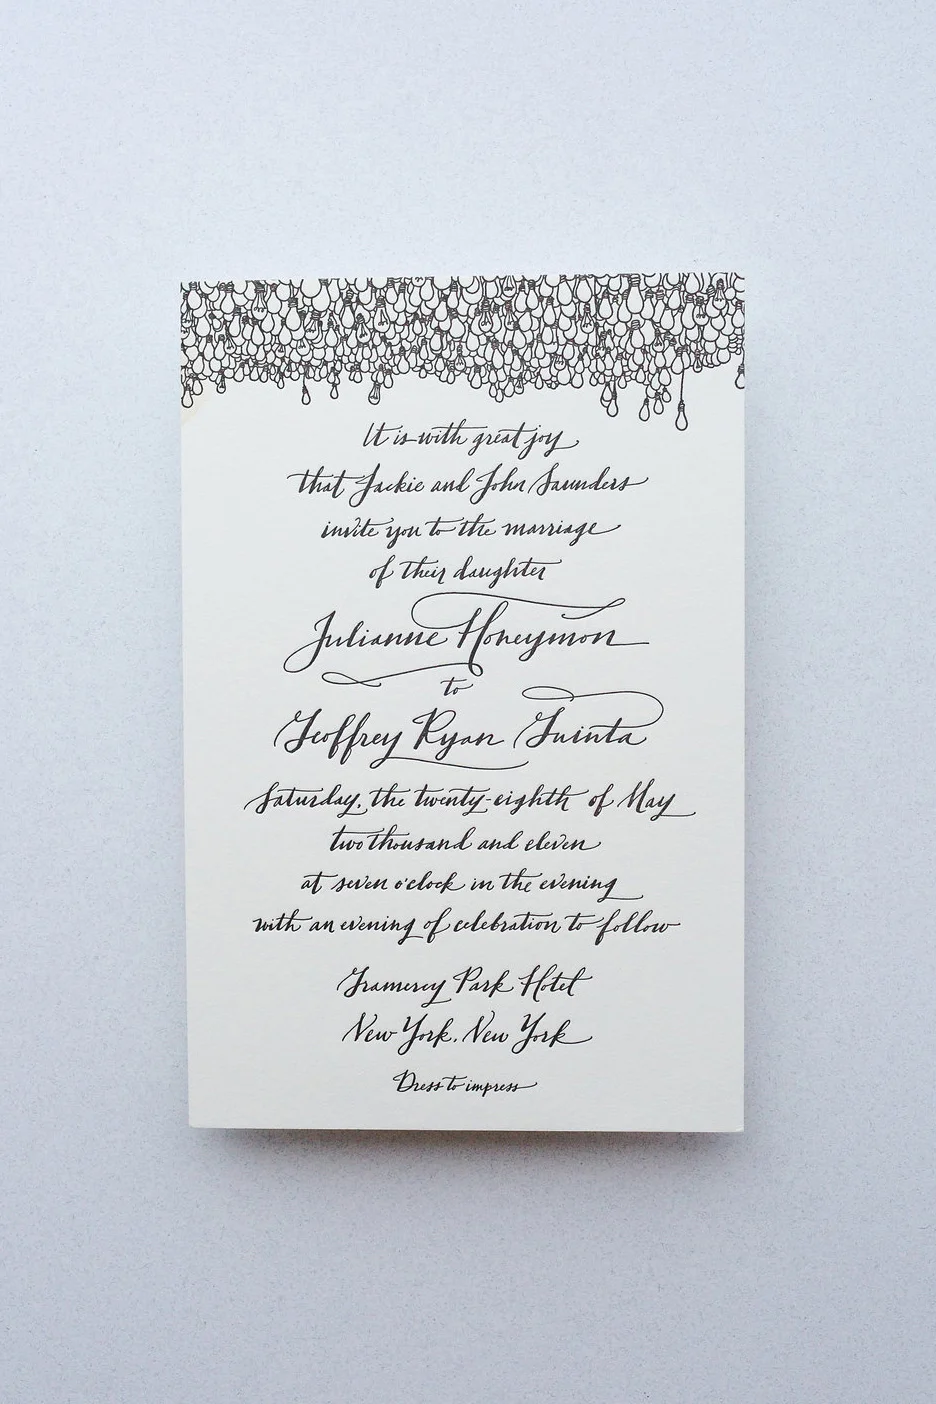 It is with great joy
that Jackie and John Saunders
invite you to the marriage
of their daughter
Julianne Honeymon
to
Geoffrey Ryan Guinta
Saturday, the twenty-eighth of May
two thousand and eleven
at seven o'clock in the evening
with an evening of celebration to follow
Gramercy Park Hotel
New York, New York
Dress to impress